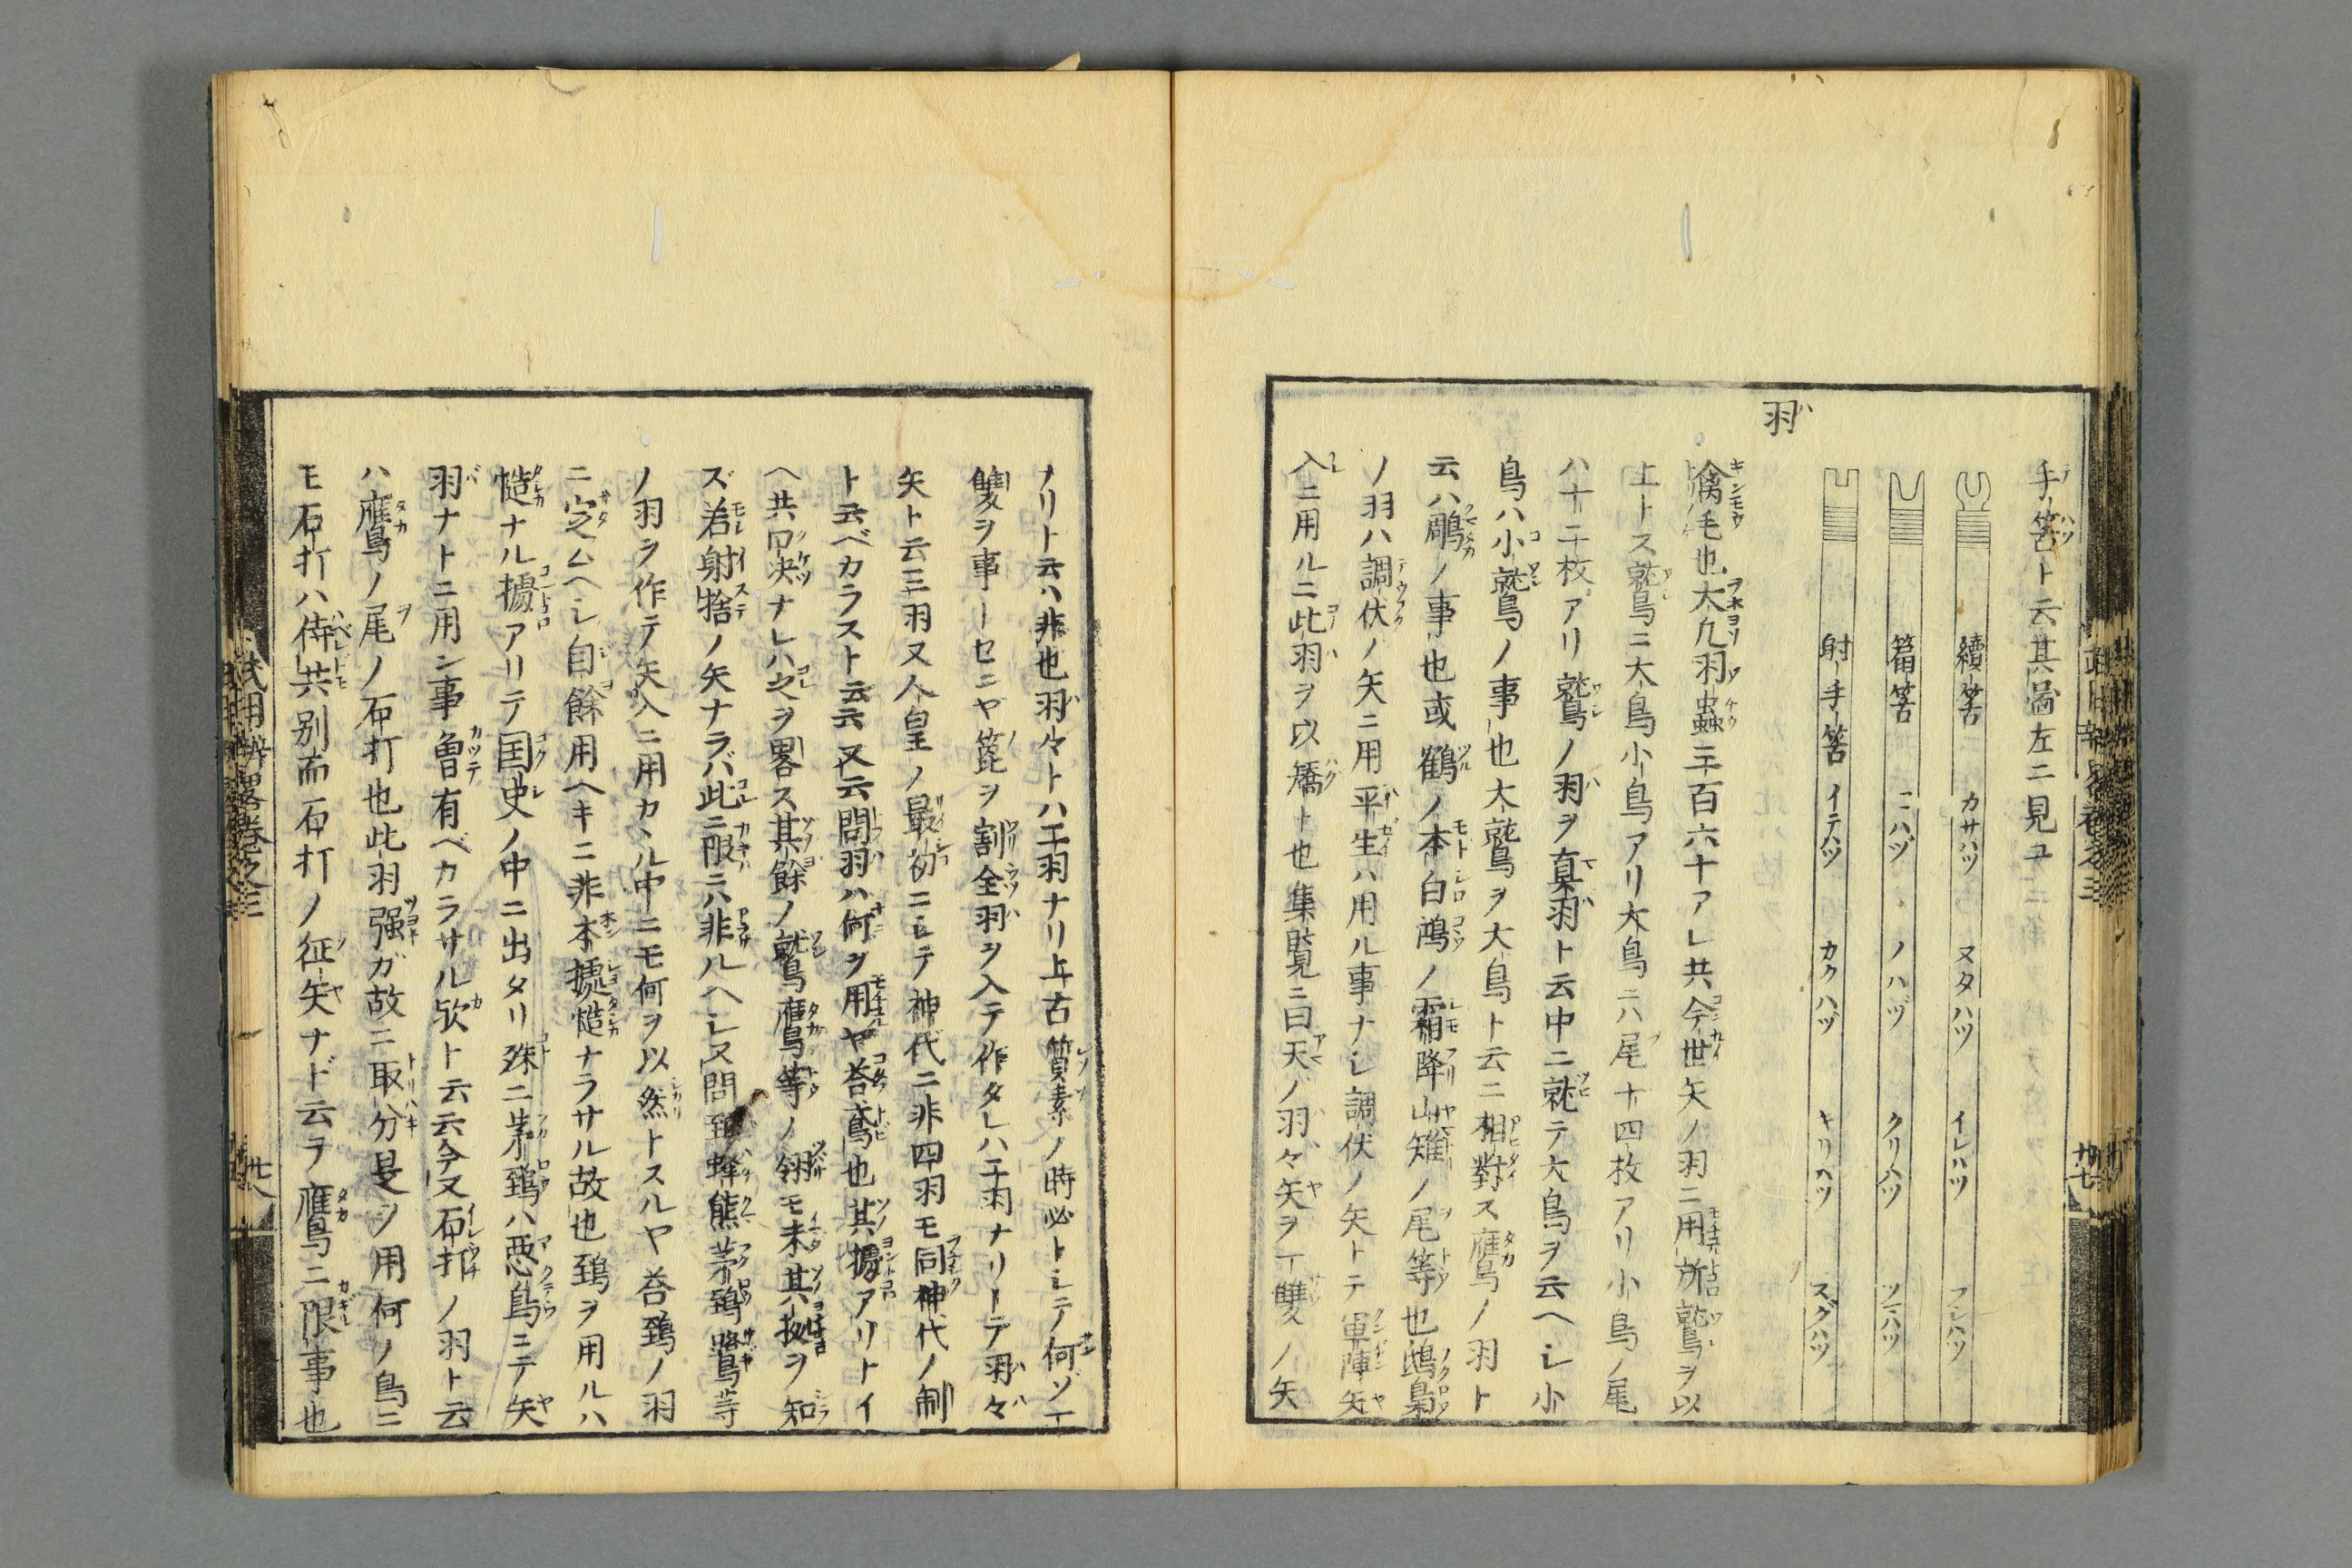 手筈ト云其啚左ニ見ユ
續筈 カサハヅ ヌタハヅ イレハヅ フシハヅ
箭筈 ニハヅ ノハヅ クリハヅ ツニハヅ
射手筈 イテハヅ カクハヅ キリハヅ スグハヅ
羽
禽毛也大凢羽蟲三百六十アレ共今世矢ノ羽ニ用所鷲ヲ以
上トス鷲ニ大鳥小鳥アリ大鳥ニハ尾十四枚アリ小鳥ノ尾
ハ十二枚アリ鷲ノ羽ヲ真羽ト云中ニ就テ大鳥ヲ云ヘシ小
鳥ハ小鷲ノ事也大鷲ヲ大鳥ト云ニ相對ス鷹ノ羽ト
云ハ鵰ノ事也或鶴ノ本白鴻ノ霜降山雉ノ尾等也鴟梟
ノ羽ハ調伏ノ矢ニ用平生ハ用ル事ナシ調伏ノ矢トテ軍陣矢
入ニ用ルニ此羽ヲ以矯ト也集覧ニ曰天ノ羽々矢ヲ一雙ノ矢
ナリト云ハ非也羽々トハ二羽ナリ上古質素ノ時必トシテ何ソ一
雙ヲ事トセンヤ箆ヲ割全羽ヲ入テ作タレハ二羽ナリトテ羽々
矢ト云三羽又人皇ノ最初ニシテ神代ニ非四羽モ同神代ノ制
ト云ベカラスト云云又云問羽ハ何ヲ用ヤ荅鳶也其據アリトイ
ヘ共口决ナレハ之ヲ畧ス其餘ノ鷲鷹等ノ翎モ未其拠ヲ知
ズ若射捨ノ矢ナラバ此ニ限ニハ非ルヘシ又問鵄蜂熊茅鵄鷺等
ノ羽ヲ作テ矢入ニ用カヽル中ニモ何ヲ以然トスルヤ荅鵄ノ羽
ニ定ムヘシ自餘用ヘキニ非本據慥ナラサル故也鵄ヲ用ルハ
慥ナル據アリテ国史ノ中ニ出タリ殊ニ茅鵄ハ悪鳥ニテ矢
羽ナトニ用ン事曽有ベカラサル欤ト云云今又石打ノ羽ト云
ハ鷹ノ尾ノ石打也此羽强ガ故ニ取分是ヲ用何ノ鳥ニ
モ石打ハ侍共別而石打ノ征矢ナド云ヲ鷹ニ限事也
武用辨畧巻之三 廿八